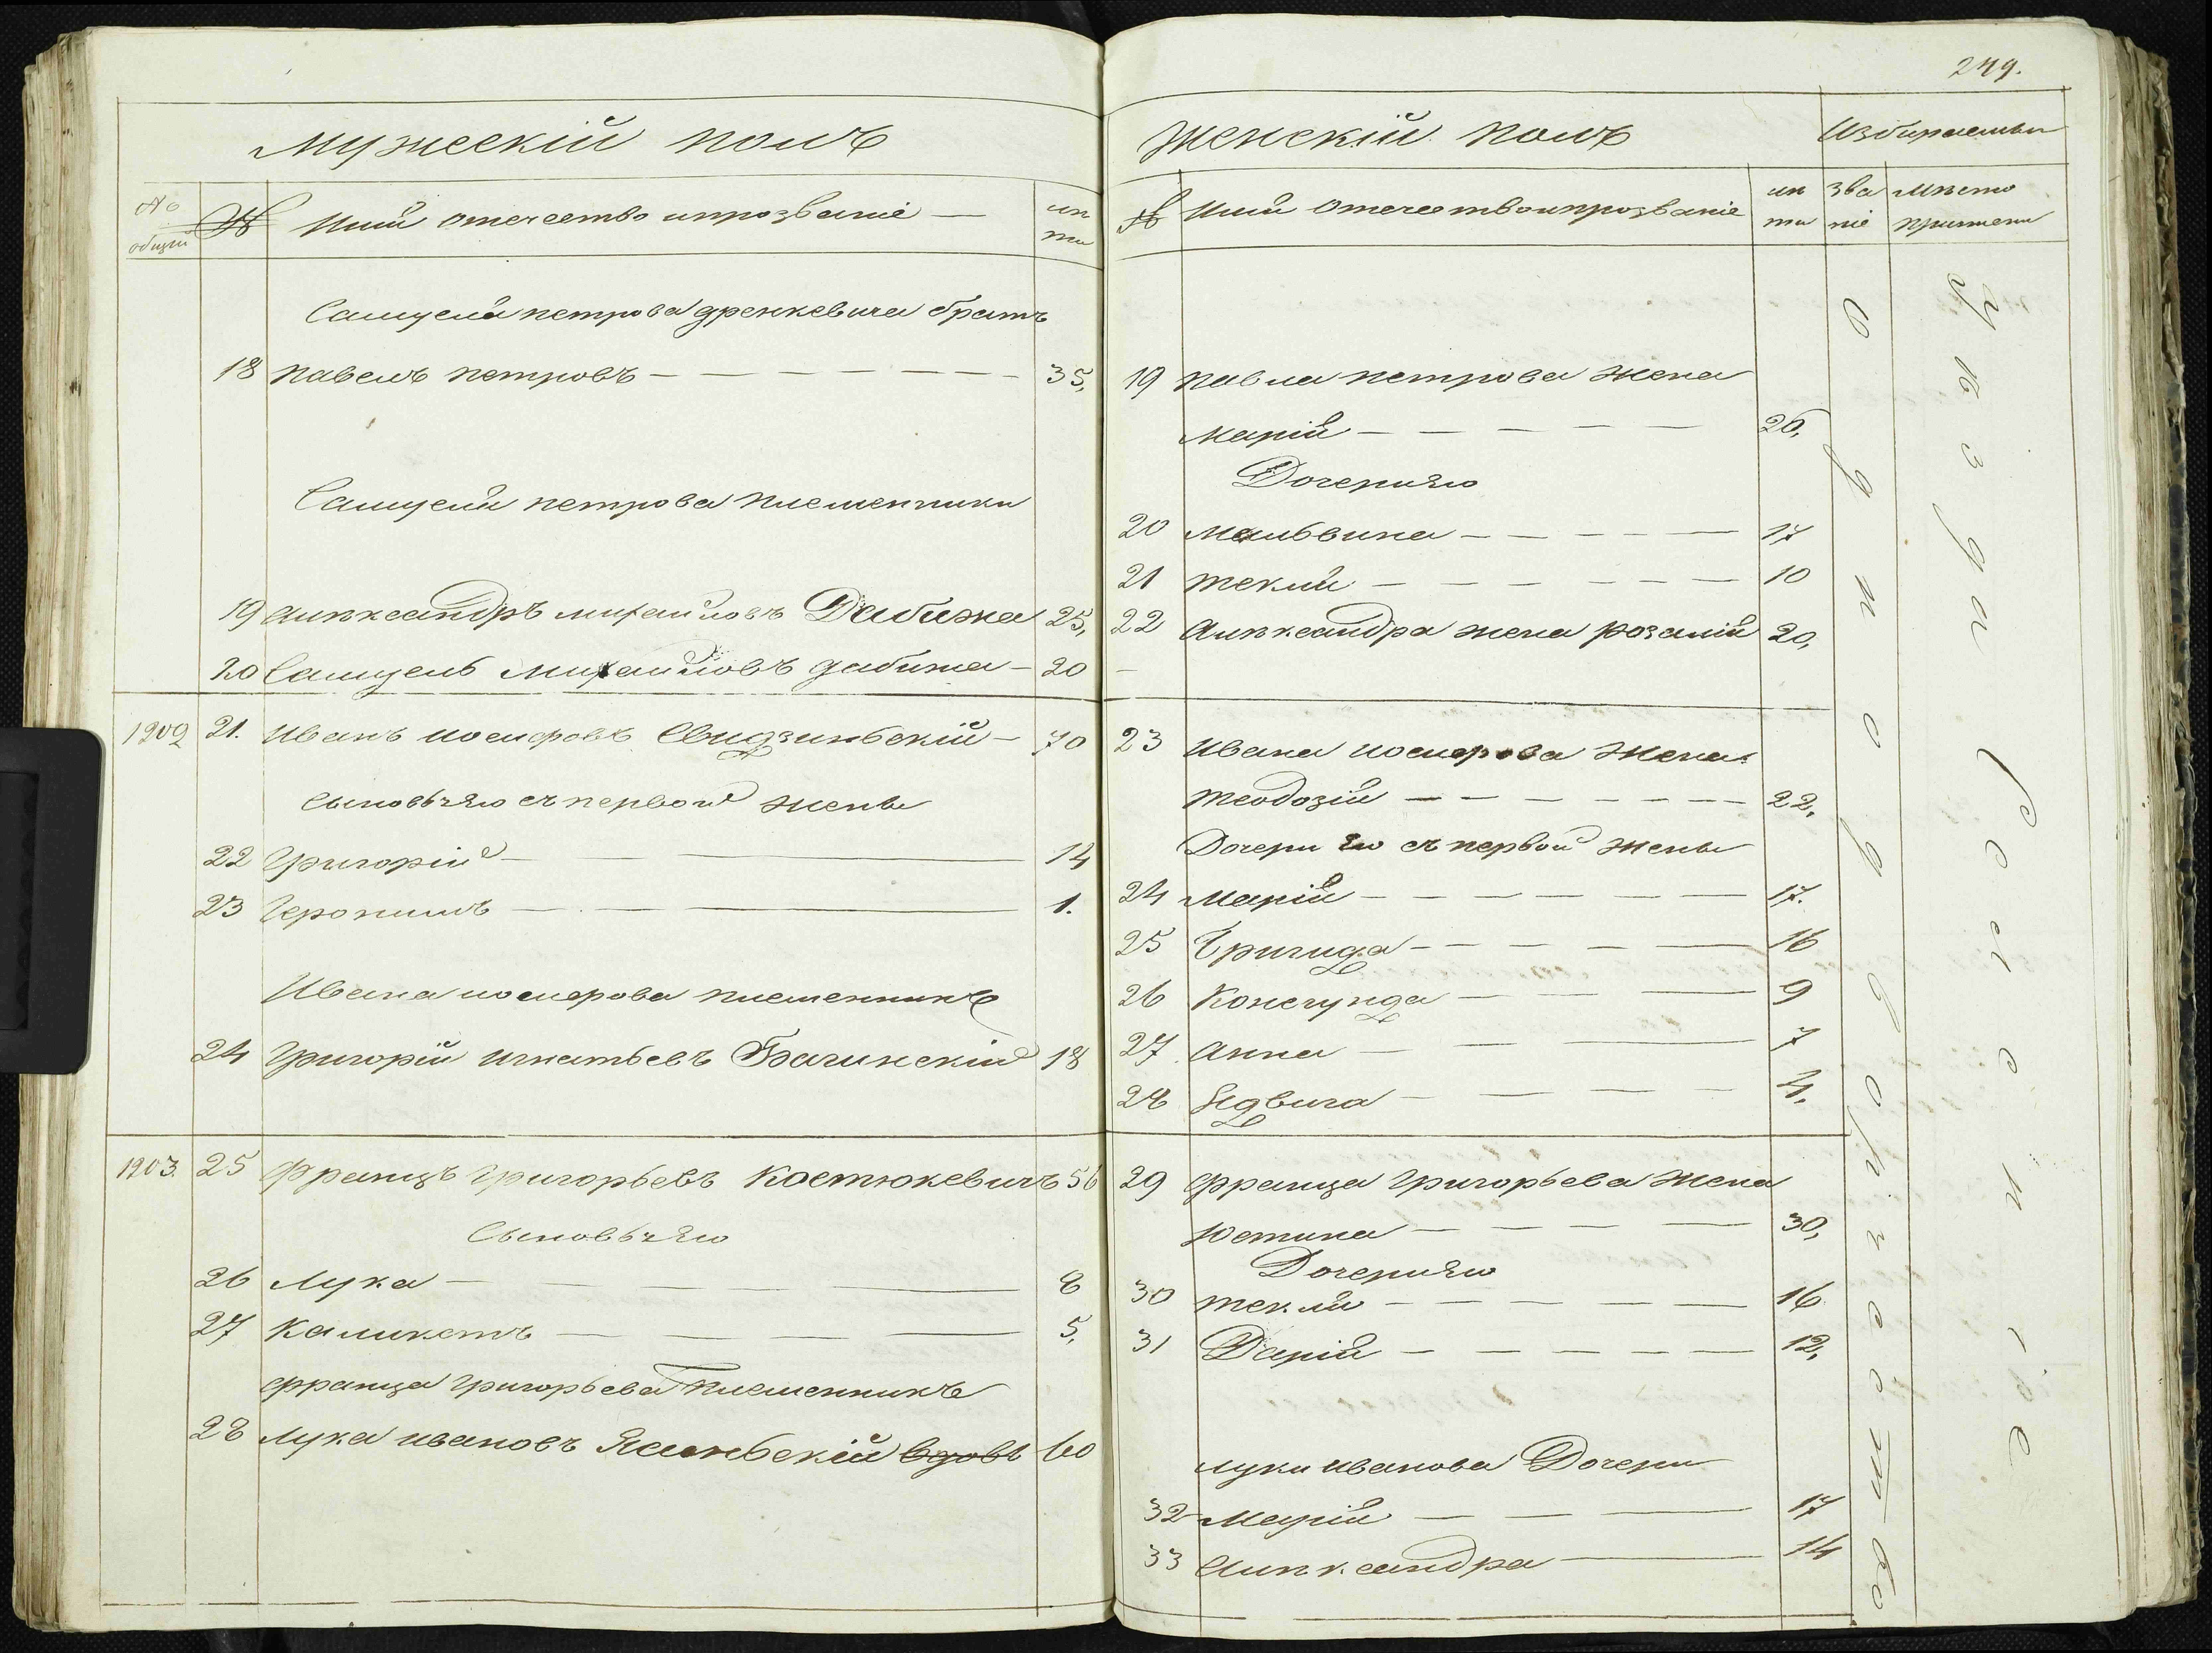 Мужескій полъ
№ общій № Имя отечество и прозваніе лѣта
Самуеля петрова дренкевича братъ
18 павелъ петровъ — 35,
Самуеля петрова племенники
19 алѣксандръ михайловъ Дабижа 25,
20 Самуель Михайловъ дабижа — 20
1202 21. Иванъ иосифовъ Свидзинскій — 70
Сыновья Его съ первой жены
22 Григорій — 14
23 Геронимъ — 1.
Ивана иосифова племенникъ
24 Григорій игнатьевъ Багинскій 18
1203. 25 Францъ Григорьевъ Костюкевичъ 56
Сыновья Его
26 Лука — 8
27 Каликстъ — 5,
Франца Григорьева племенникъ
28 Лука ивановъ Яс­инскій вдовъ 60
249.
Женскій полъ Избираемы
№ Имя отечество и прозваніе лѣта званіе Мѣсто
19 павла петрова жена
Марія — 26,
Дочери Его
20 Мальвина — 17
21 текля — 10
22 Алѣксандра жена розалія 20,
23 Ивана иосифова жена
теодозія — 22,
Дочери Его съ первой жены
24 Марія — 17.
25 Бригида — 16
26 Конегунда — 9
27 анна — 7
28 Ядвига — 4,
29 Франца Григорьева жена
Юстина — 30,
Дочери Его
30 текля — 16
31 Дарія — 12,
луки иванова Дочери
32 Марія — 17
33 Алѣксандра — 14
Однодворческо
уѣзда